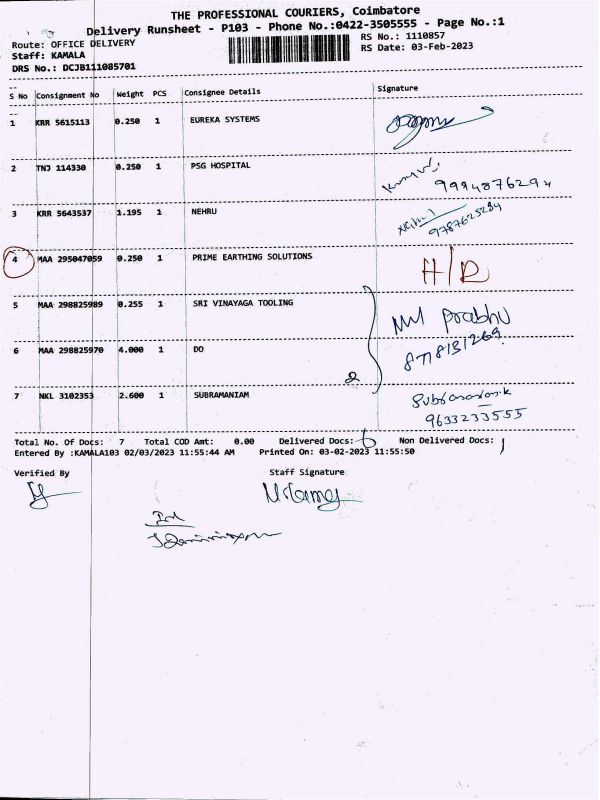 THE PROFESSIONAL COURIERS, Coimbatore
Delivery Runsheet - P103 - Phone No.:0422-3505555 - Page No.:1
Route: OFFICE DELIVERY
RS No.: 1110857
Staff: KAMALA
RS Date: 03-Feb-2023
DRS No.: DCJB111085701
S No Consignment No Weight PCS Consignee Details Signature
1 KRR 5615113 0.250 1 EUREKA SYSTEMS
2 TNJ 114330 0.250 1 PSG HOSPITAL
9994876294
3 KRR 5643537 1.195 1 NEHRU
9787625294
4 MAA 295047059 0.250 1 PRIME EARTHING SOLUTIONS H/R
5 MAA 298825989 0.255 1 SRI VINAYAGA TOOLING
prabhu
6 MAA 298825970 4.000 1 DO
8778131269
2
7 NKL 3102353 2.600 1 SUBRAMANIAM
9633233555
Total No. Of Docs: 7 Total COD Amt: 0.00 Delivered Docs: 6 Non Delivered Docs: 1
Entered By :KAMALA103 02/03/2023 11:55:44 AM Printed On: 03-02-2023 11:55:50
Verified By Staff Signature